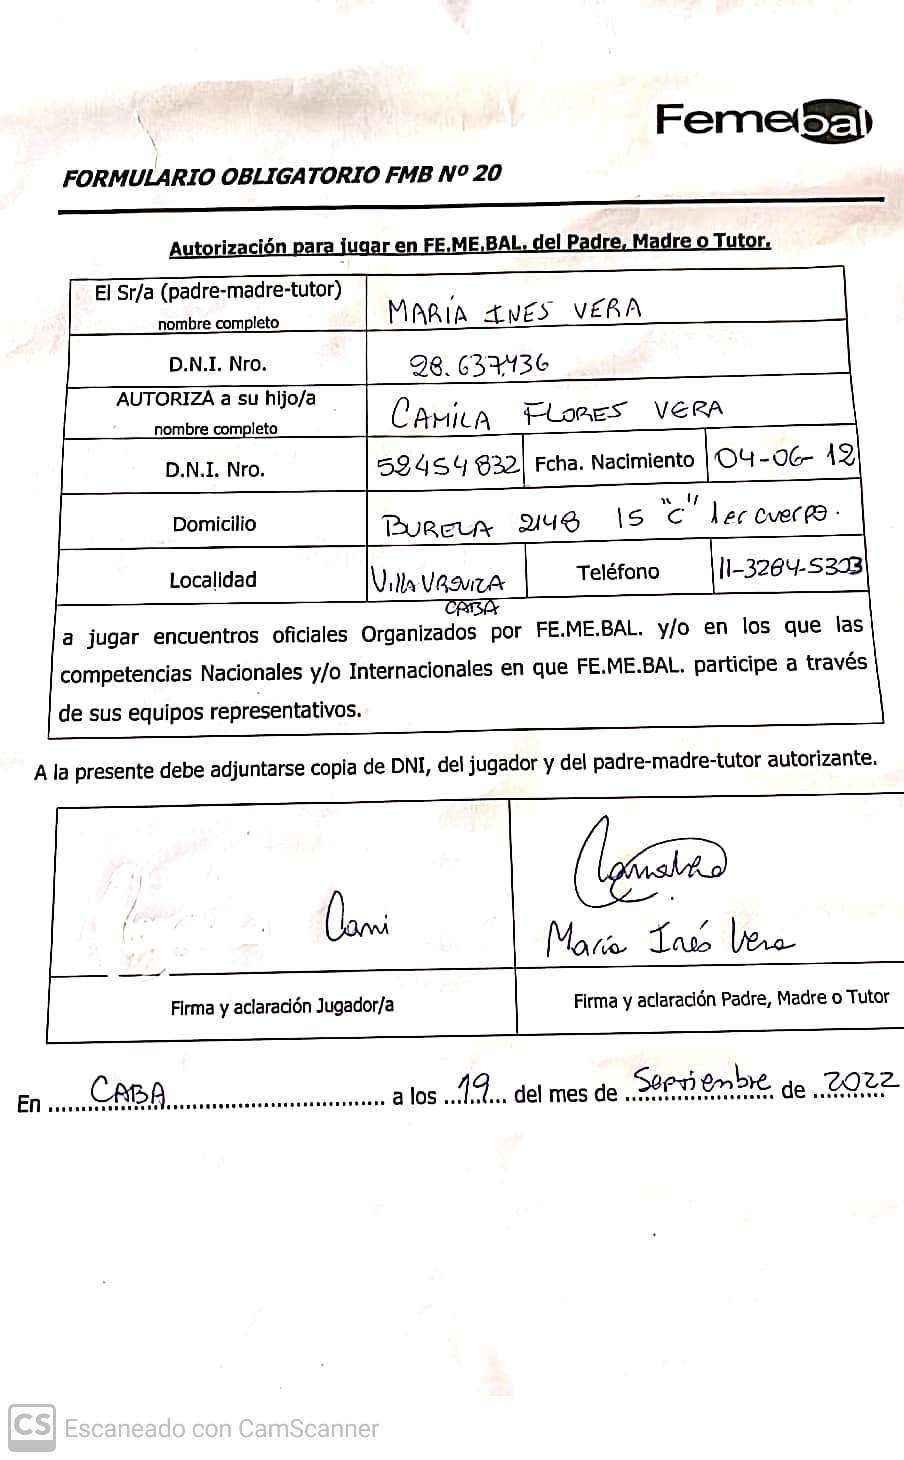 Femebal
FORMULARIO OBLIGATORIO FMB Nº 20
Autorización para jugar en FE.ME.BAL. del Padre, Madre o Tutor.
El Sr/a (padre-madre-tutor)
nombre completo
MARÍA INES VERA
D.N.I. Nro.
28.637.436
AUTORIZA a su hijo/a
nombre completo
CAMILA FLORES VERA
D.N.I. Nro.
52454832
Fcha. Nacimiento
04-06-12
Domicilio
BURELA 2148 15 "C" 1er cuerpo.
Localidad
VIllA URQUIZA
CABA
Teléfono
11-3284-5303
a jugar encuentros oficiales Organizados por FE.ME.BAL. y/o en los que las
competencias Nacionales y/o Internacionales en que FE.ME.BAL. participe a través
de sus equipos representativos.
A la presente debe adjuntarse copia de DNI, del jugador y del padre-madre-tutor autorizante.
Cami
María Inés Vera
Firma y aclaración Jugador/a
Firma y aclaración Padre, Madre o Tutor
En CABA a los 19 del mes de Septiembre de 2022
CS Escaneado con CamScanner